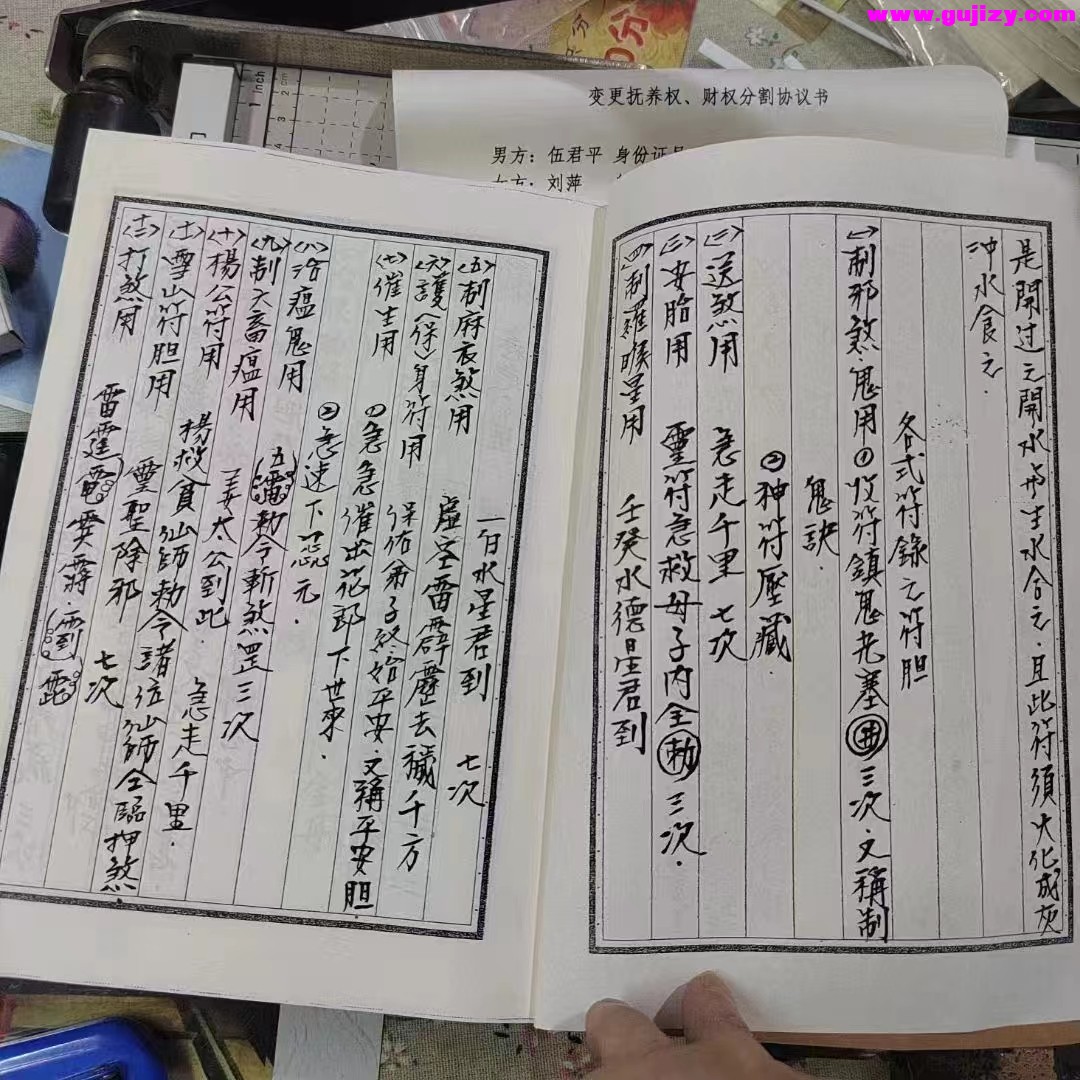 www.gujizy.com
变更抚养权、财权分割协议书
男方：伍君平 身份证号
女方：刘萍
是開过之開水与生水合之．且此符須火化成灰
冲水食之．
各式符錄之符胆
㈠制邪煞鬼用①收符鎮鬼 三次．文稱制
鬼訣．
②神符壓藏．
㈡送煞用 急走千里 七次
㈢安胎用 靈符急救母子内全勅三次．
㈣制羅睺星用 壬癸水德星君到
一白水星君到 七次
〈五〉制麻衣煞用 虚空雷霹靂去穢千方
〈六〉護〈保〉身符用 保佑弟子終始平安．文稱平安胆
〈七〉催生用 ①急急催出花郎下世來．
②急速下 元．
〈八〉治瘟鬼用 五雷勅令斬煞罡三次
〈九〉制六畜瘟用 姜太公到此．急走千里．
〈十〉楊公符用 楊救貧仙師勅令諸位仙師仝臨押煞
〈十一〉雪山符胆用 靈聖除邪 七次
〈十二〉打煞用 雷霆